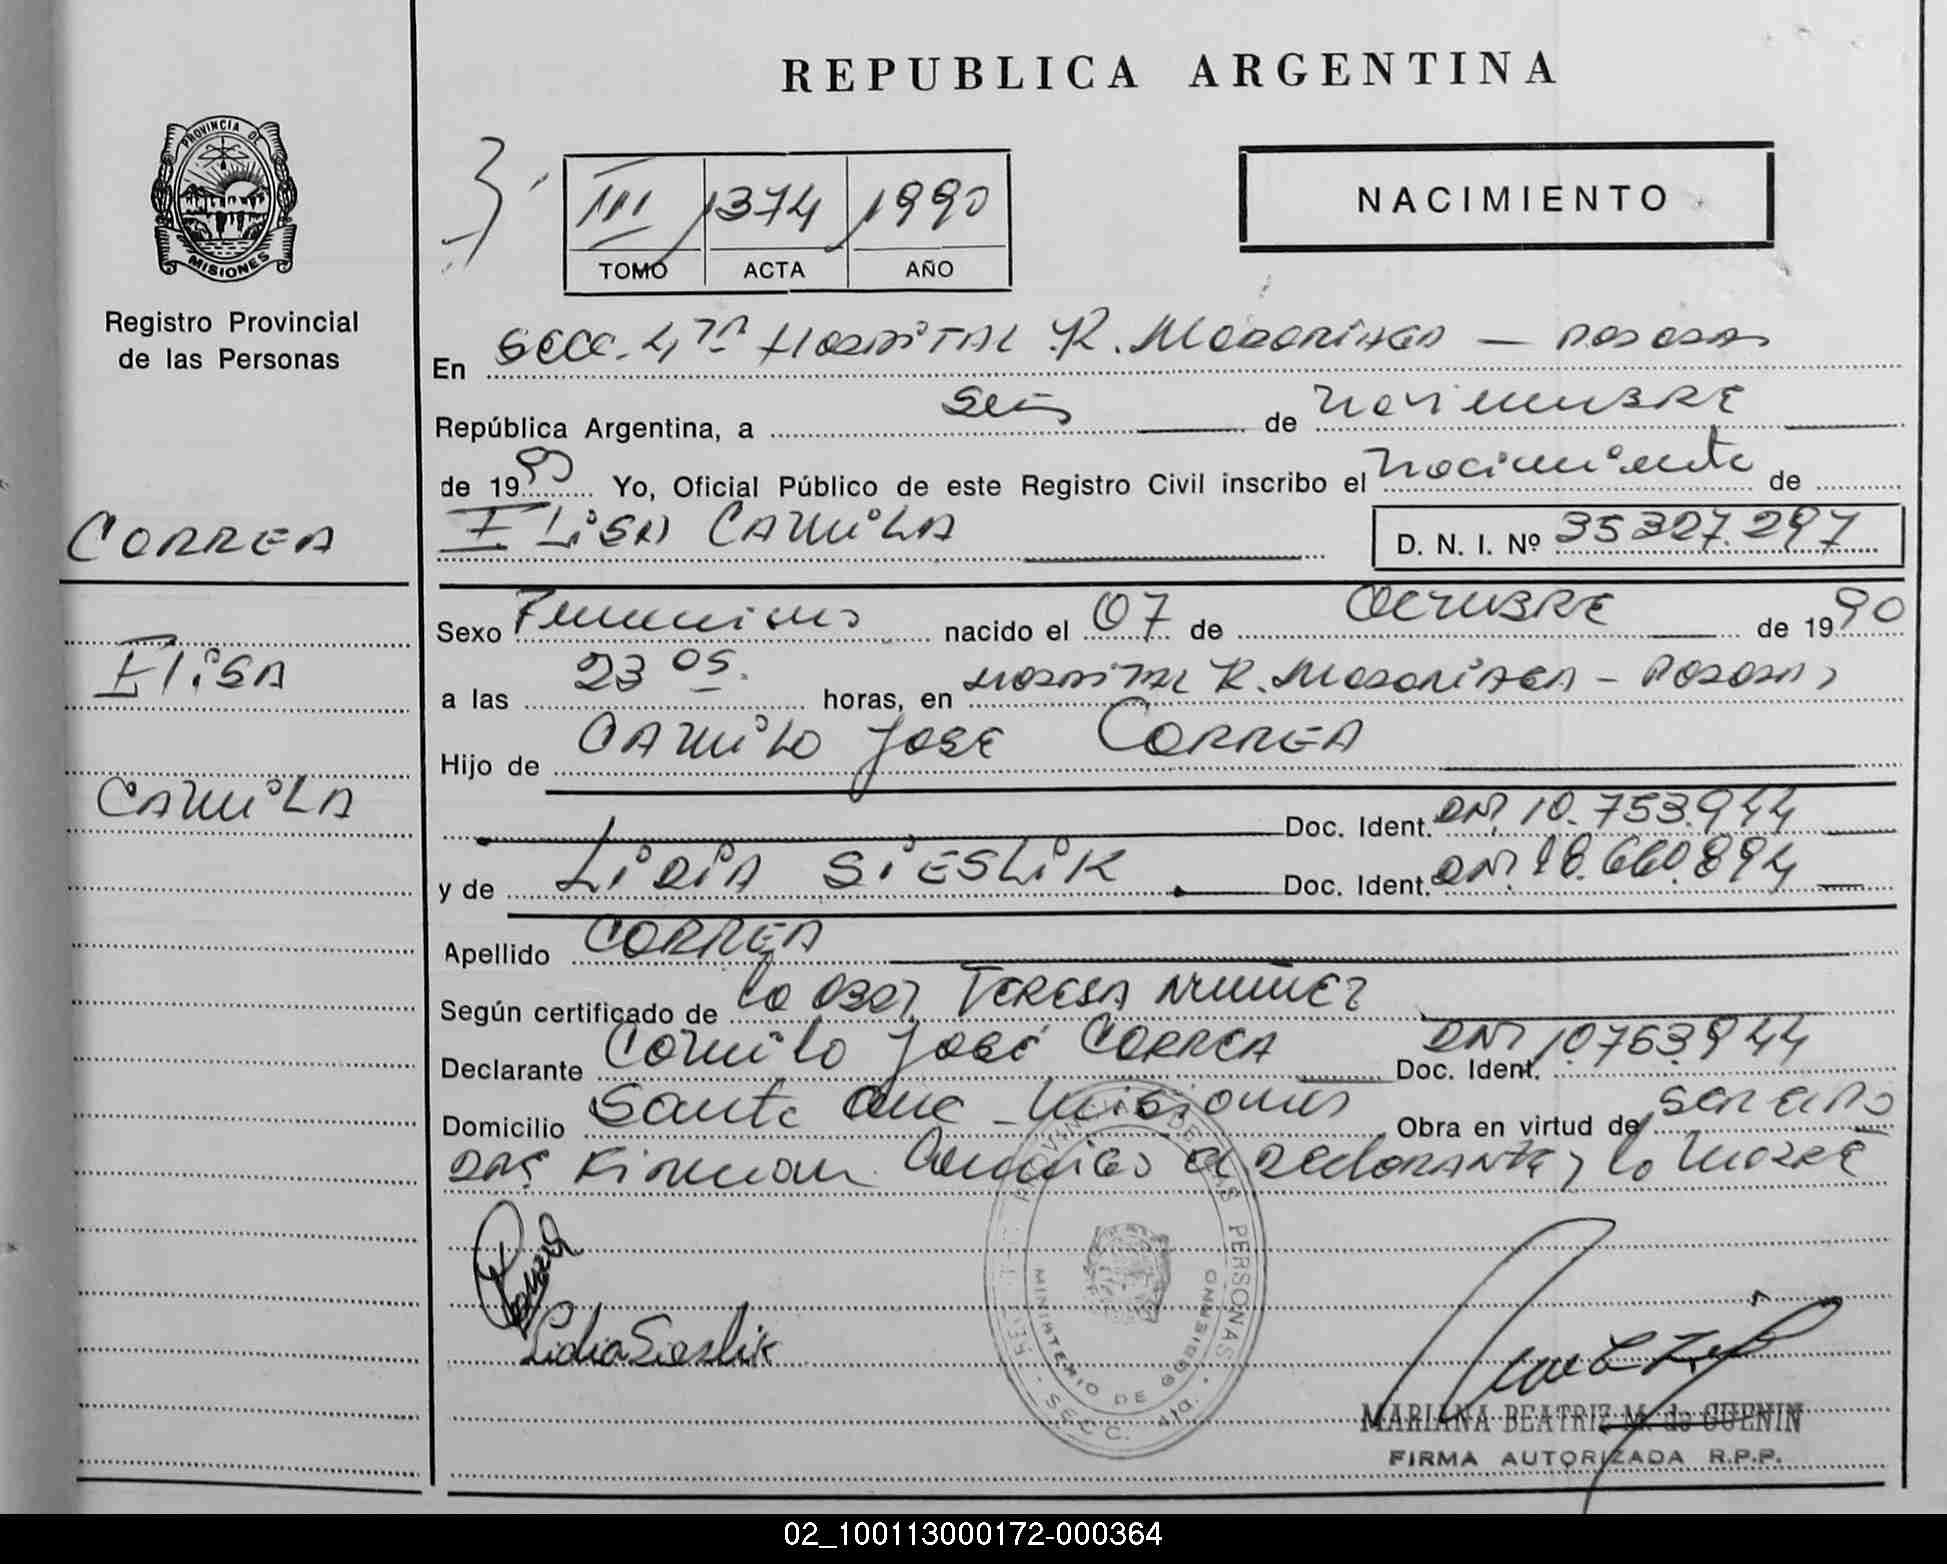 REPUBLICA ARGENTINA
PROVINCIA DE
MISIONES
Registro Provincial
de las Personas
III 1374 1990
TOMO ACTA AÑO
NACIMIENTO
En Secc. 4ta Hospital R. Madariaga — Posadas
República Argentina, a Seis de Noviembre
de 1990 Yo, Oficial Público de este Registro Civil inscribo el Nacimiento de
ELISA CAMILA D. N. I. Nº 35327.297
CORREA
ELISA
CAMILA
Sexo Femenino nacido el 07 de OCTUBRE de 1990
a las 23 05. horas, en Hospital R. Madariaga - Posadas
Hijo de CAMILO JOSE CORREA
Doc. Ident. DNI 10.753.944
y de LIDIA SIESLIK Doc. Ident. DNI 18.660.894
Apellido CORREA
Según certificado de la Obst. TERESA NUÑEZ
Declarante Camilo José CORREA Doc. Ident. DNI 10763944
Domicilio Santa Ana - Misiones Obra en virtud de
Firman Conmigo el DECLARANTE y la MADRE
Lidia Sieslik
PROVINCIAL DE LAS PERSONAS
MINISTERIO DE GOBIERNO
SECC. 4ta.
MARIANA BEATRIZ M. de GUENIN
FIRMA AUTORIZADA R.P.P.
02_100113000172-000364